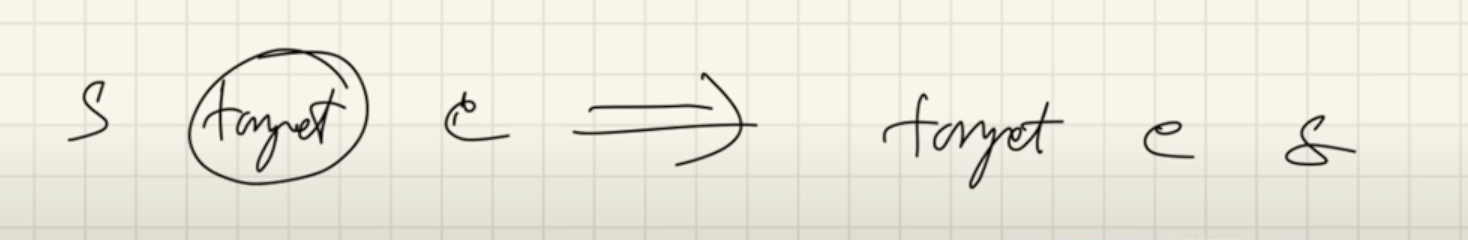 s target e ⇒ target e s